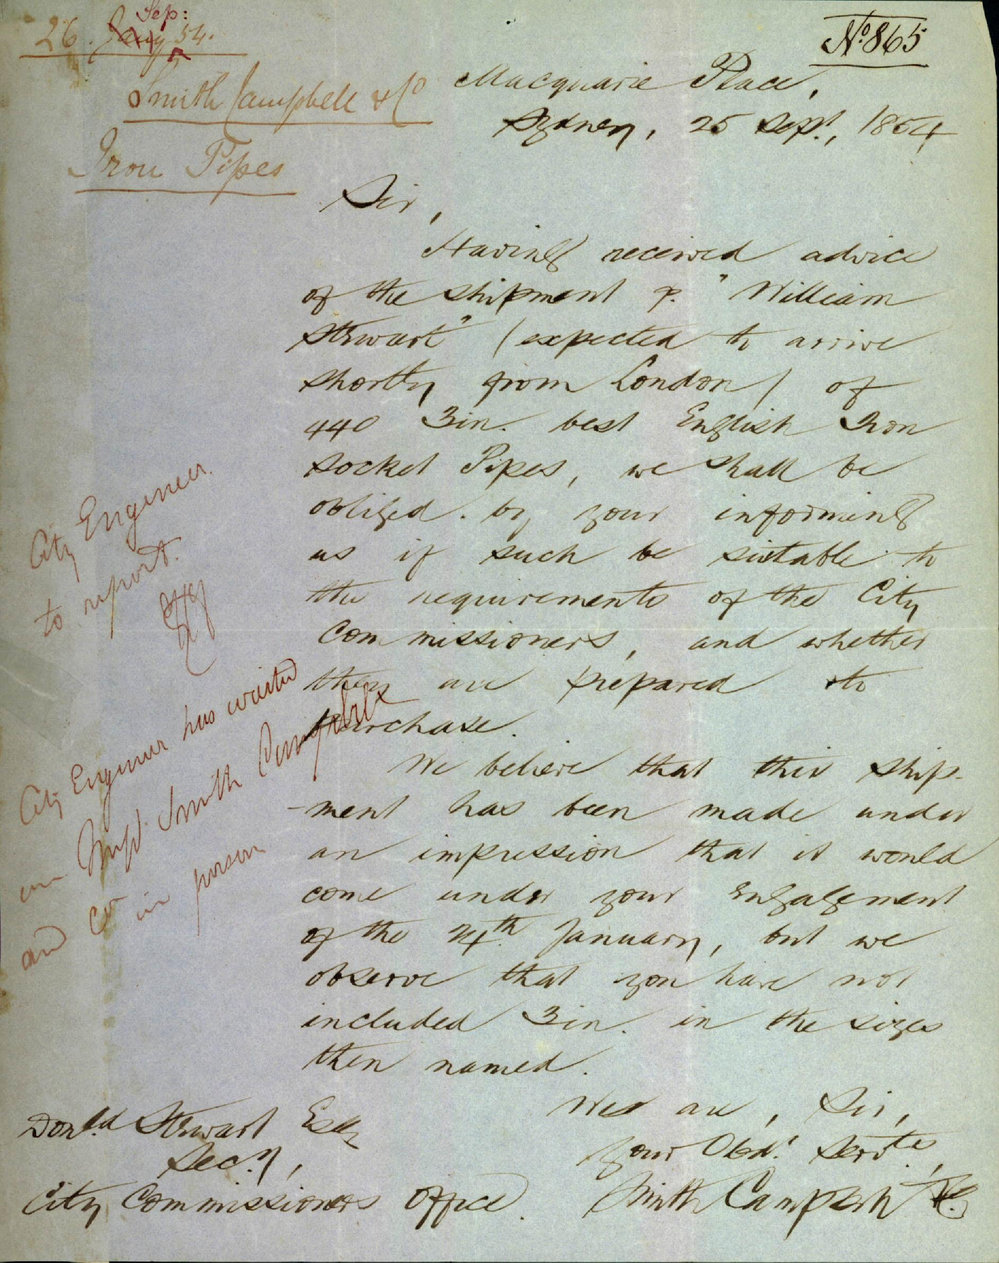 26. Jany 54.
Sep:
Smith Campbell & Co
Iron Pipes
No. 865
Macquarie Place,
Sydney, 25 Sept., 1854
Sir,
Having received advice
of the shipment p. "William
Stewart" (expected to arrive
shortly from London) of
440 3in. best English Iron
Socket Pipes, we shall be
obliged by your informing
us if such be suitable to
the requirements of the City
Commissioners, and whether
they are prepared to
purchase.
We believe that this ship-
-ment has been made under
an impression that it would
come under your Engagement
of the 24th January, but we
observe that you have not
included 3in. in the sizes
then named.
We are, Sir,
your Obdt. Servts,
Smith Campbell & Co.
Don.ld Stewart Esq
Secy,
City Commissioners Office.
City Engineer
to report.
City Engineer has waited
on Messrs. Smith Campbell
and Co in person